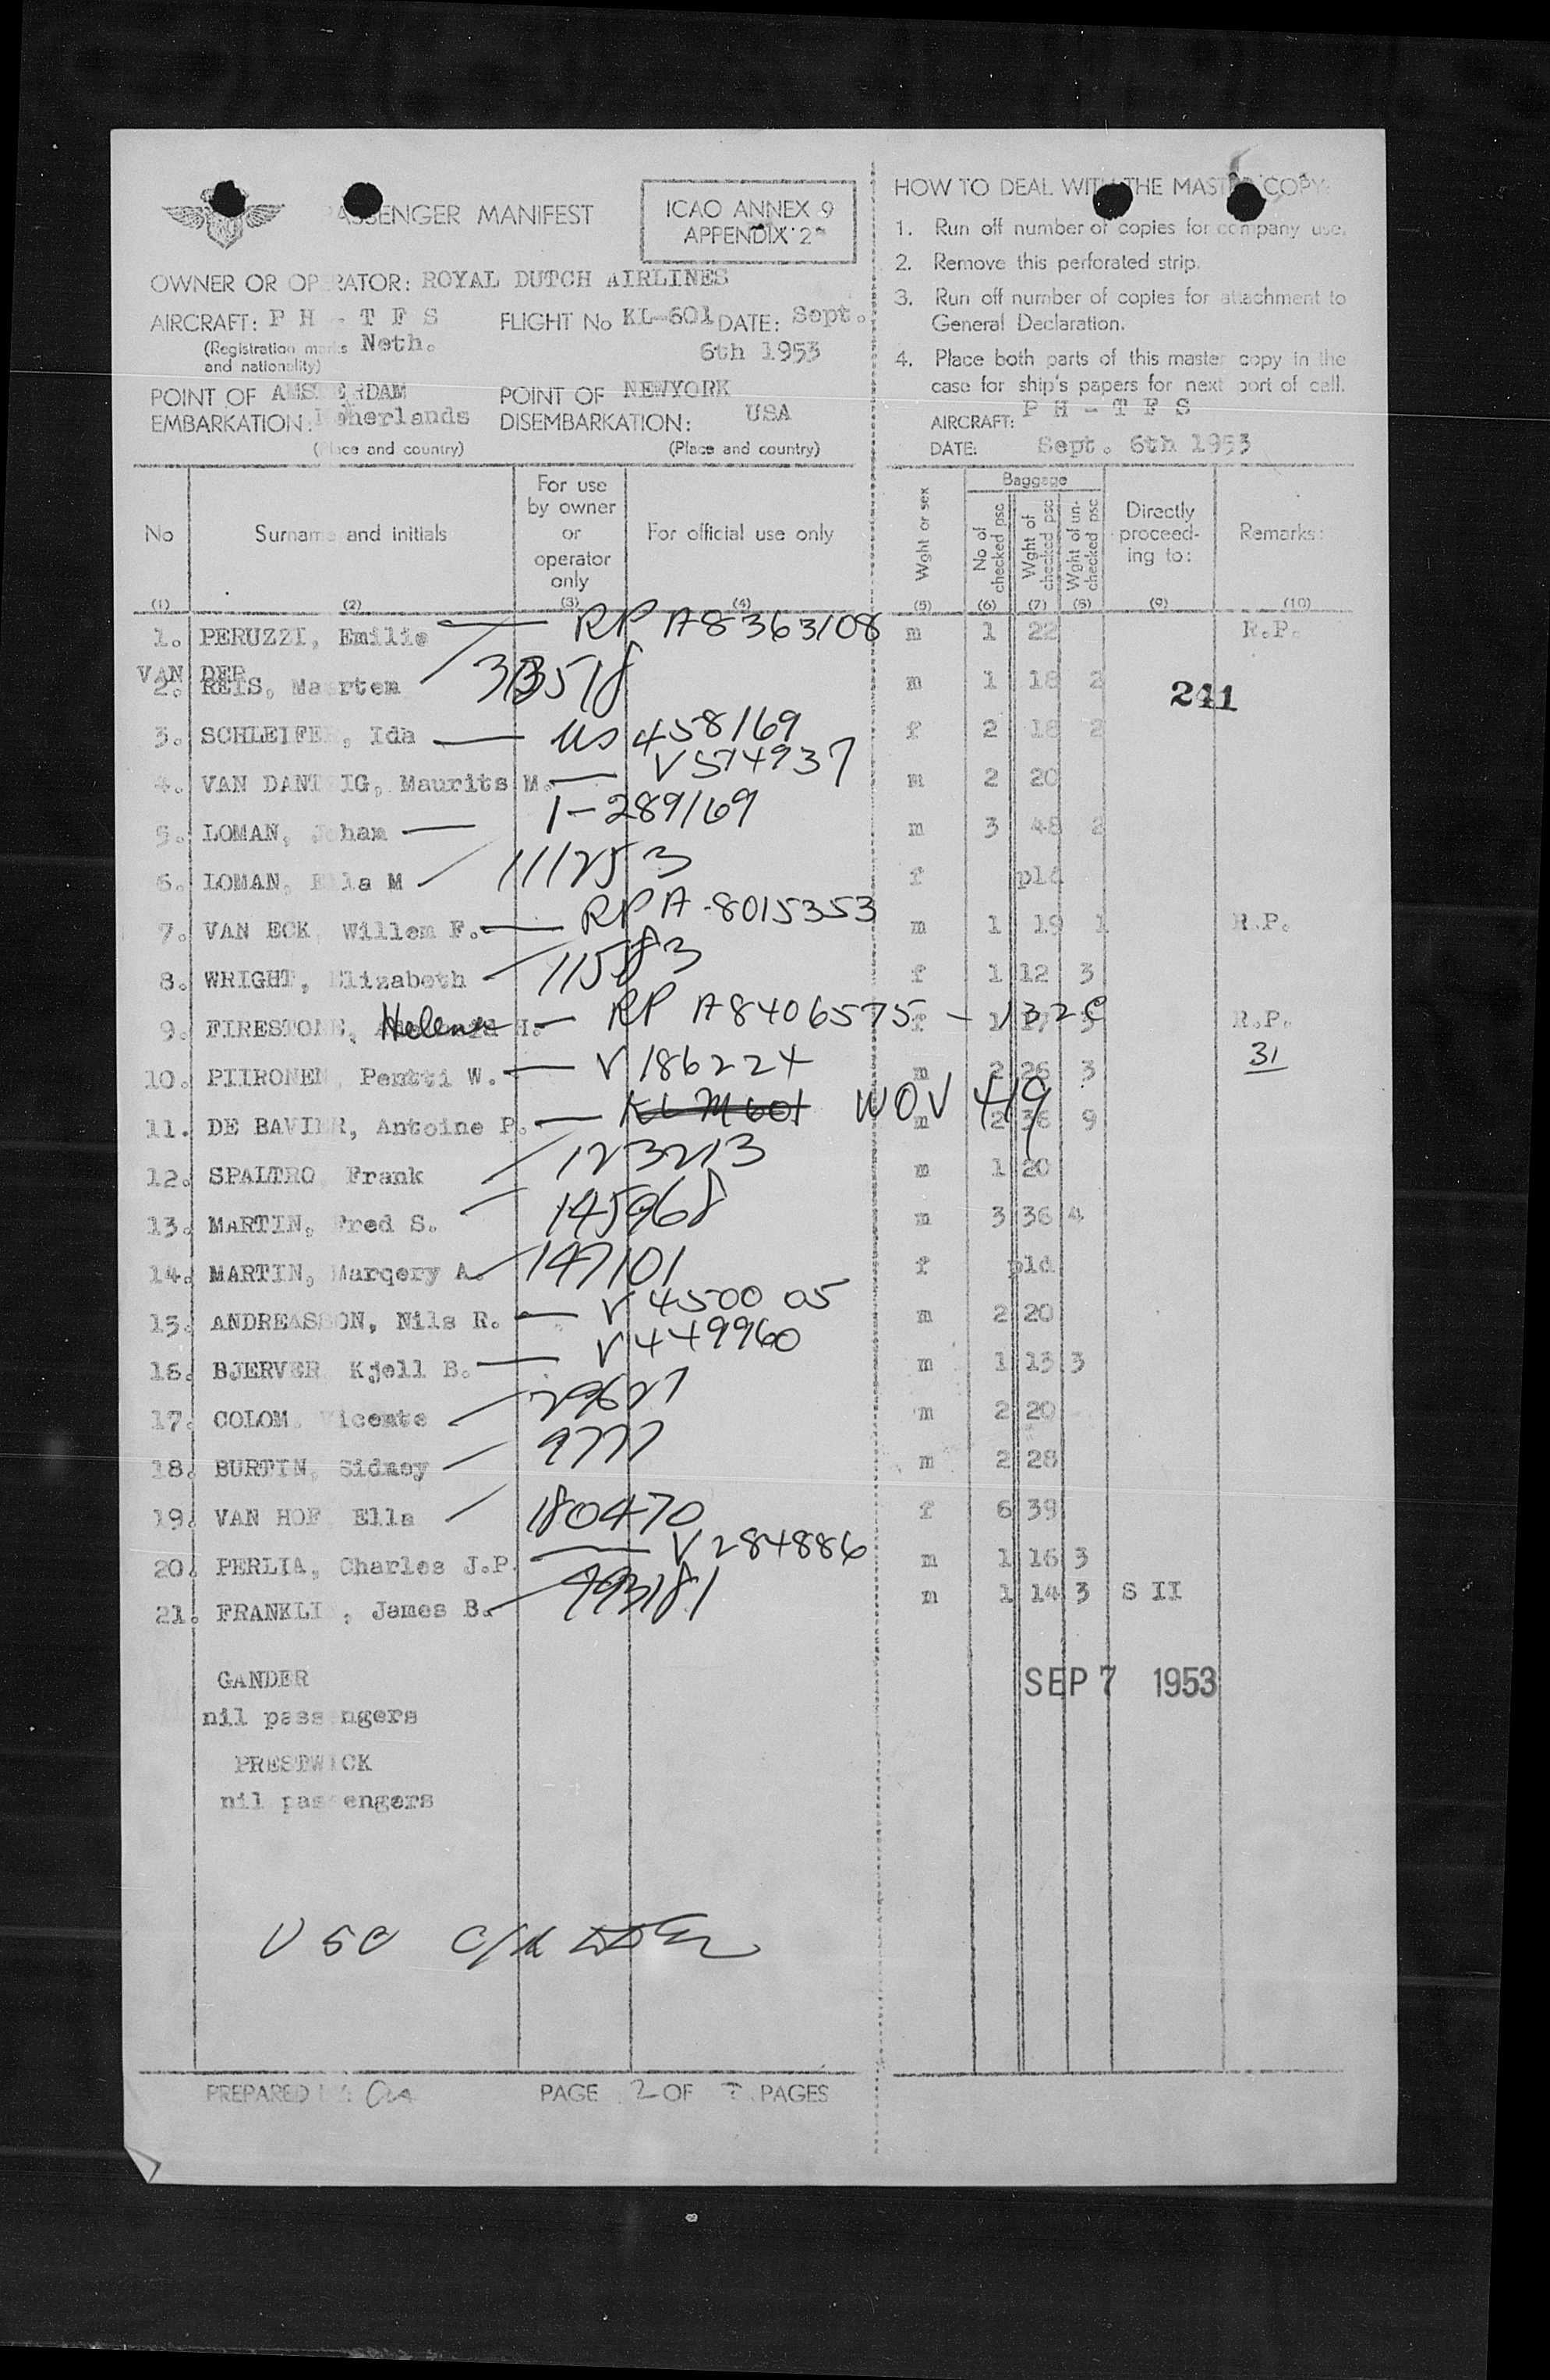 PASSENGER MANIFEST
ICAO ANNEX 9
APPENDIX 2
OWNER OR OPERATOR: ROYAL DUTCH AIRLINES
AIRCRAFT: P H - T F S FLIGHT No KL-601 DATE: Sept.
(Registration marks and nationality) Neth. 6th 1953
POINT OF EMBARKATION: AMSTERDAM Netherlands
(Place and country)
POINT OF DISEMBARKATION: NEWYORK USA
(Place and country)
HOW TO DEAL WITH THE MASTER COPY:
1. Run off number of copies for company use.
2. Remove this perforated strip.
3. Run off number of copies for attachment to
General Declaration.
4. Place both parts of this master copy in the
case for ship's papers for next port of call.
AIRCRAFT: P H - T F S
DATE: Sept. 6th 1953
No Surname and initials For use by owner or operator only For official use only Wght or sex Baggage No of checked psc Wght of checked psc Wght of un-checked psc Directly proceed-ing to: Remarks:
(1) (2) (3) (4) (5) (6) (7) (8) (9) (10)
1. PERUZZI, Emilie RP A8363108 m 1 22 R.P.
VAN DER
2. REIS, Maartem m 1 18 2 241
3. SCHLEIFER, Ida US 458169 f 2 18 2
4. VAN DANTZIG, Maurits M. V574937 m 2 20
5. LOMAN, Joham 1-289169 m 3 48 2
6. LOMAN, Ella M 111253 f pld
7. VAN ECK, Willem F. RP A-8015353 m 1 19 1 R.P.
8. WRIGHT, Elizabeth 11583 f 1 12 3
9. FIRESTONE, Helena H. RP A8406575 - 132C f 1 17 3 R.P.
10. PIIRONEN, Pentti W. V186224 m 2 26 3 31
11. DE BAVIER, Antoine P. KLM 601 WOV 419 m 2 36 9
12. SPALTRO, Frank 123213 m 1 20
13. MARTIN, Fred S. 145968 m 3 36 4
14. MARTIN, Marqery A. 147101 f pld
15. ANDREASSON, Nils R. V 450005 m 2 20
16. BJERVER, Kjell B. V449960 m 1 13 3
17. COLOM, Vicente 29627 m 2 20
18. BURTIN, Sidney 9777 m 2 28
19. VAN HOF, Ella 180470 f 6 39
20. PERLIA, Charles J.P. V284886 m 1 16 3
21. FRANKLIN, James B. 993181 m 1 14 3 S II
GANDER
nil passengers
SEP 7 1953
PRESTWICK
nil passengers
USC
PREPARED BY: PAGE 2 OF PAGES